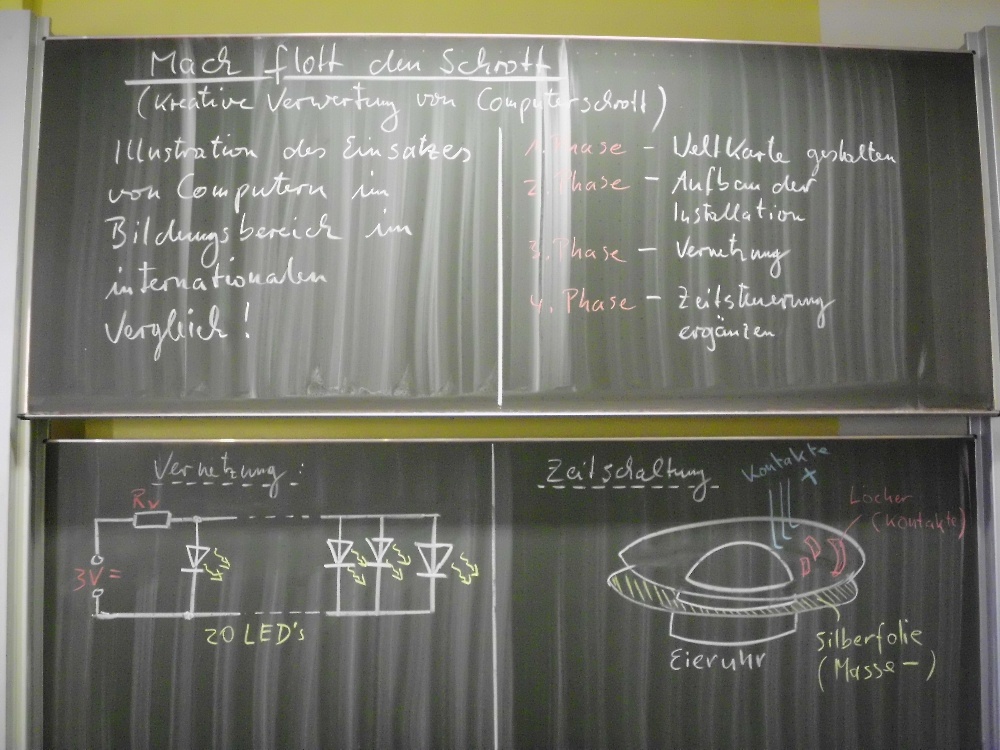 Mach flott den Schrott
(Kreative Verwertung von Computerschrott)
Illustration des Einsatzes
von Computern im
Bildungsbereich im
internationalen
Vergleich!
1. Phase - Weltkarte gestalten
2. Phase - Aufbau der
Installation
3. Phase - Vernetzung
4. Phase - Zeitsteuerung
ergänzen
Vernetzung:
Rv
3V=
20 LED's
Zeitschaltung
Kontakte
+
Löcher
(Kontakte)
Eieruhr
Silberfolie
(Masse -)